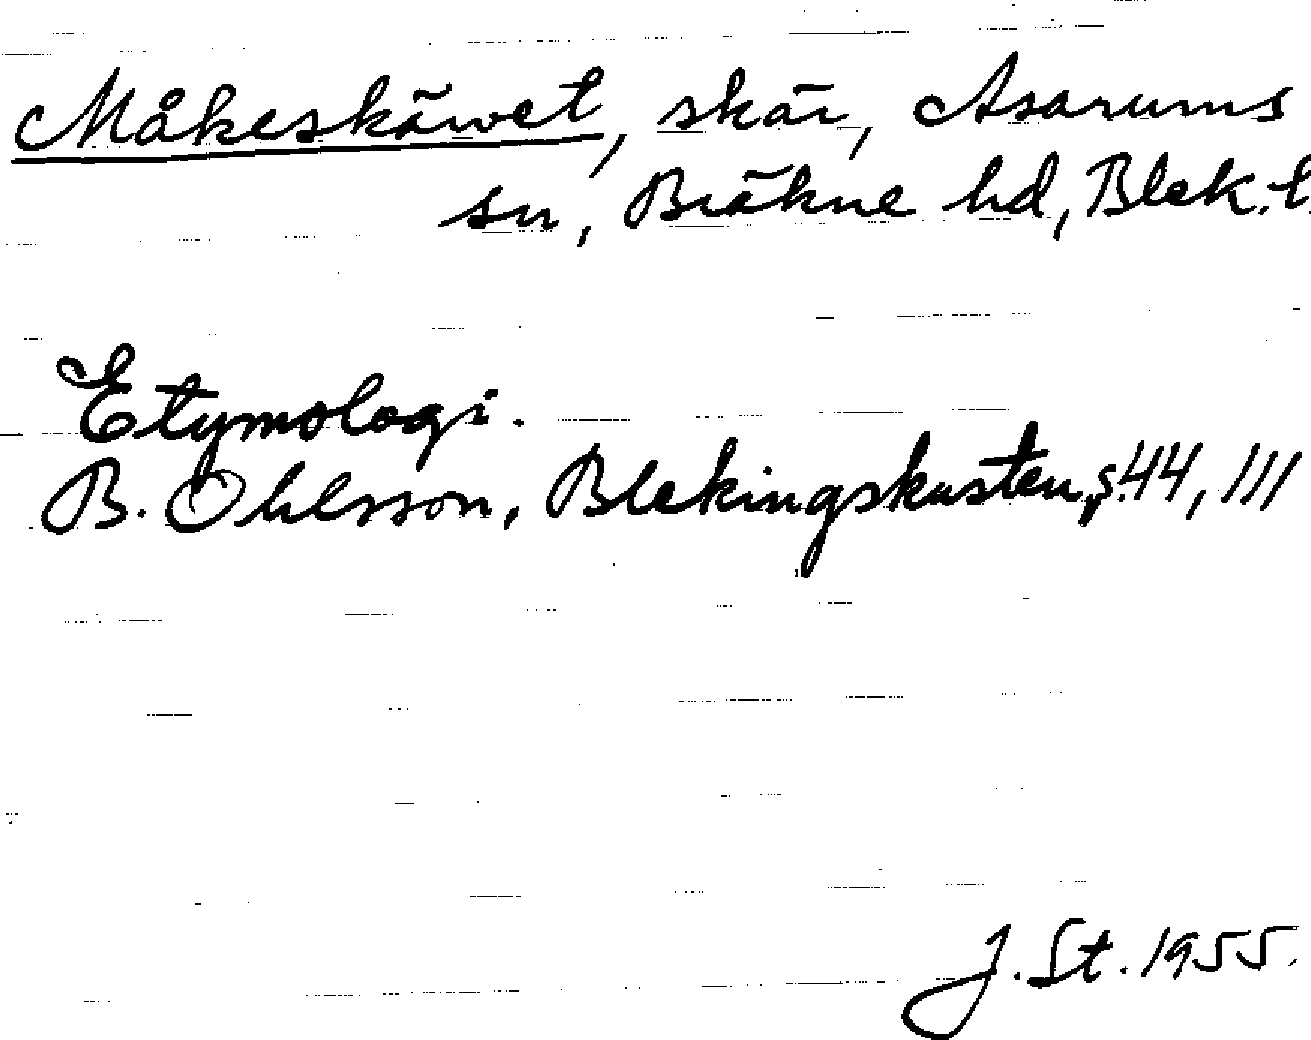 Måkeskärvet, skär, Asarums
sn, Bräkne hd, Blek. l.
Etymologi.
B. Ohlsson, Blekingskusten, s. 44, 111
J. St. 1955.